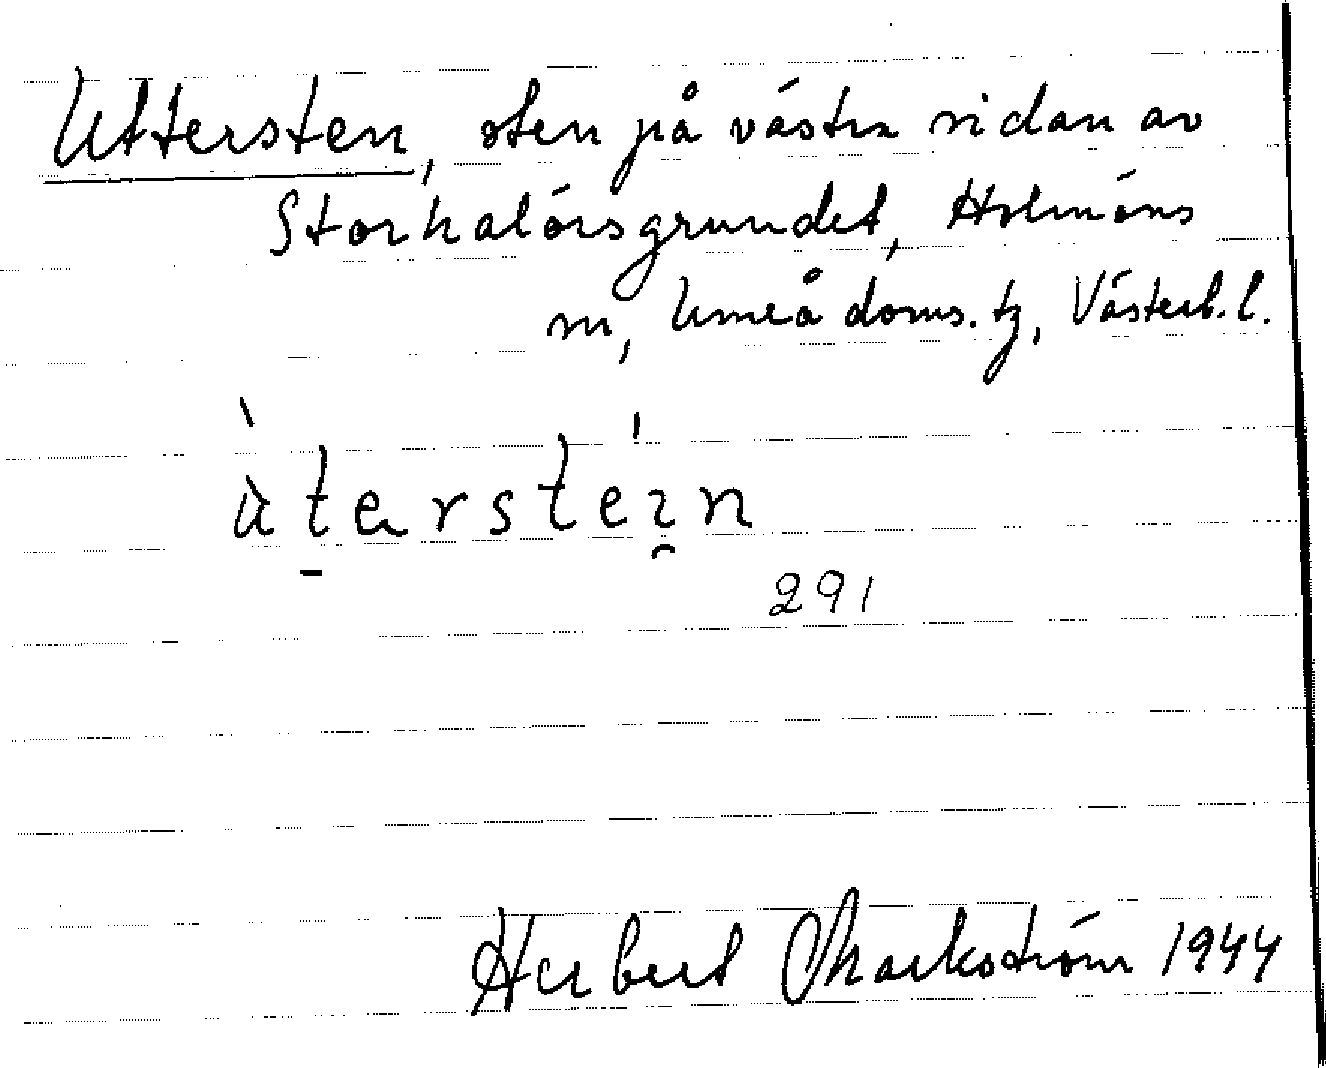 Uttersten, sten på västra sidan av
Storhalörsgrundet, Holmöns
sn, Umeå doms. tg, Västerb. l.
ùterstein
291
Herbert Markström 1944